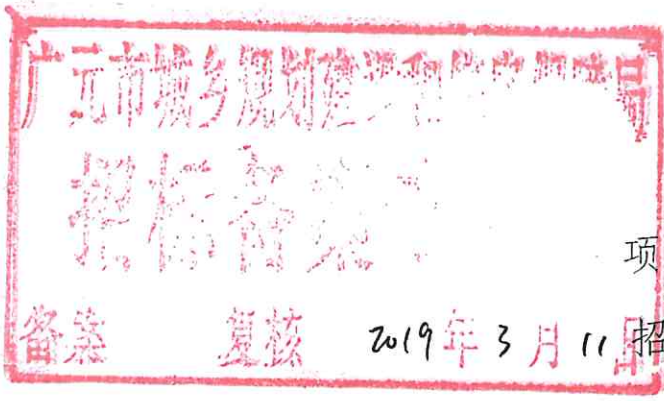 广元市城乡规划建设和住房保障局
招标备案
项
备案 复核 2019年3月11日 招